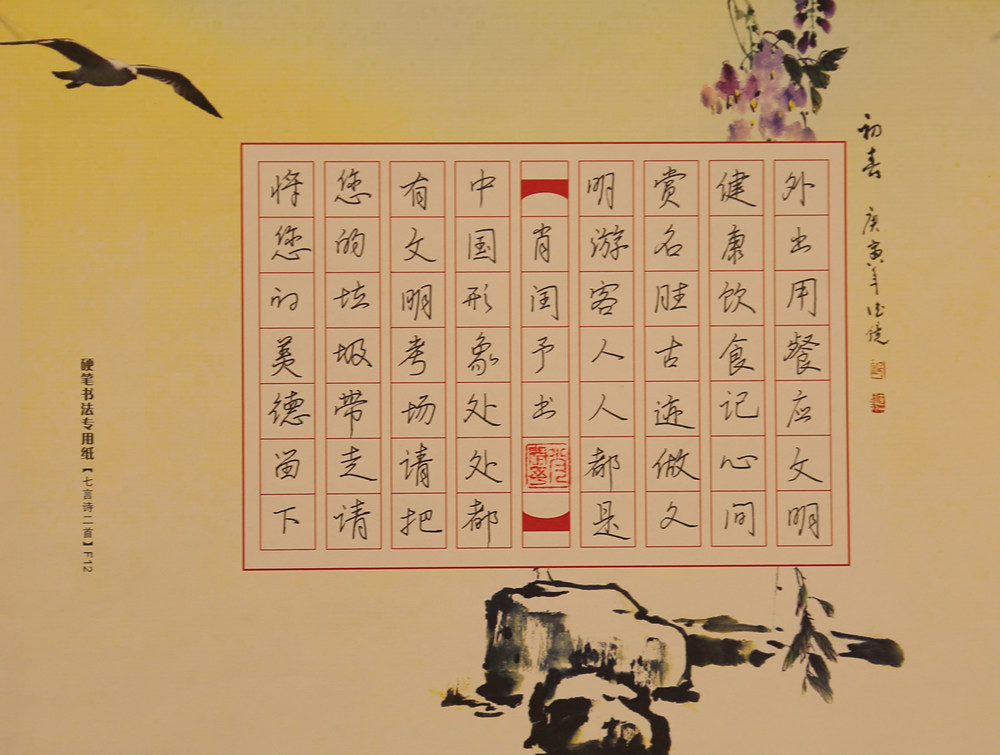 初春
庚寅年
外出用餐应文明
健康饮食记心间
赏名胜古迹做文
明游客人人都是
肖闰予书
中国形象处处都
有文明考场请把
您的垃圾带走请
将您的美德留下
硬笔书法专用纸【七言诗二首】F12